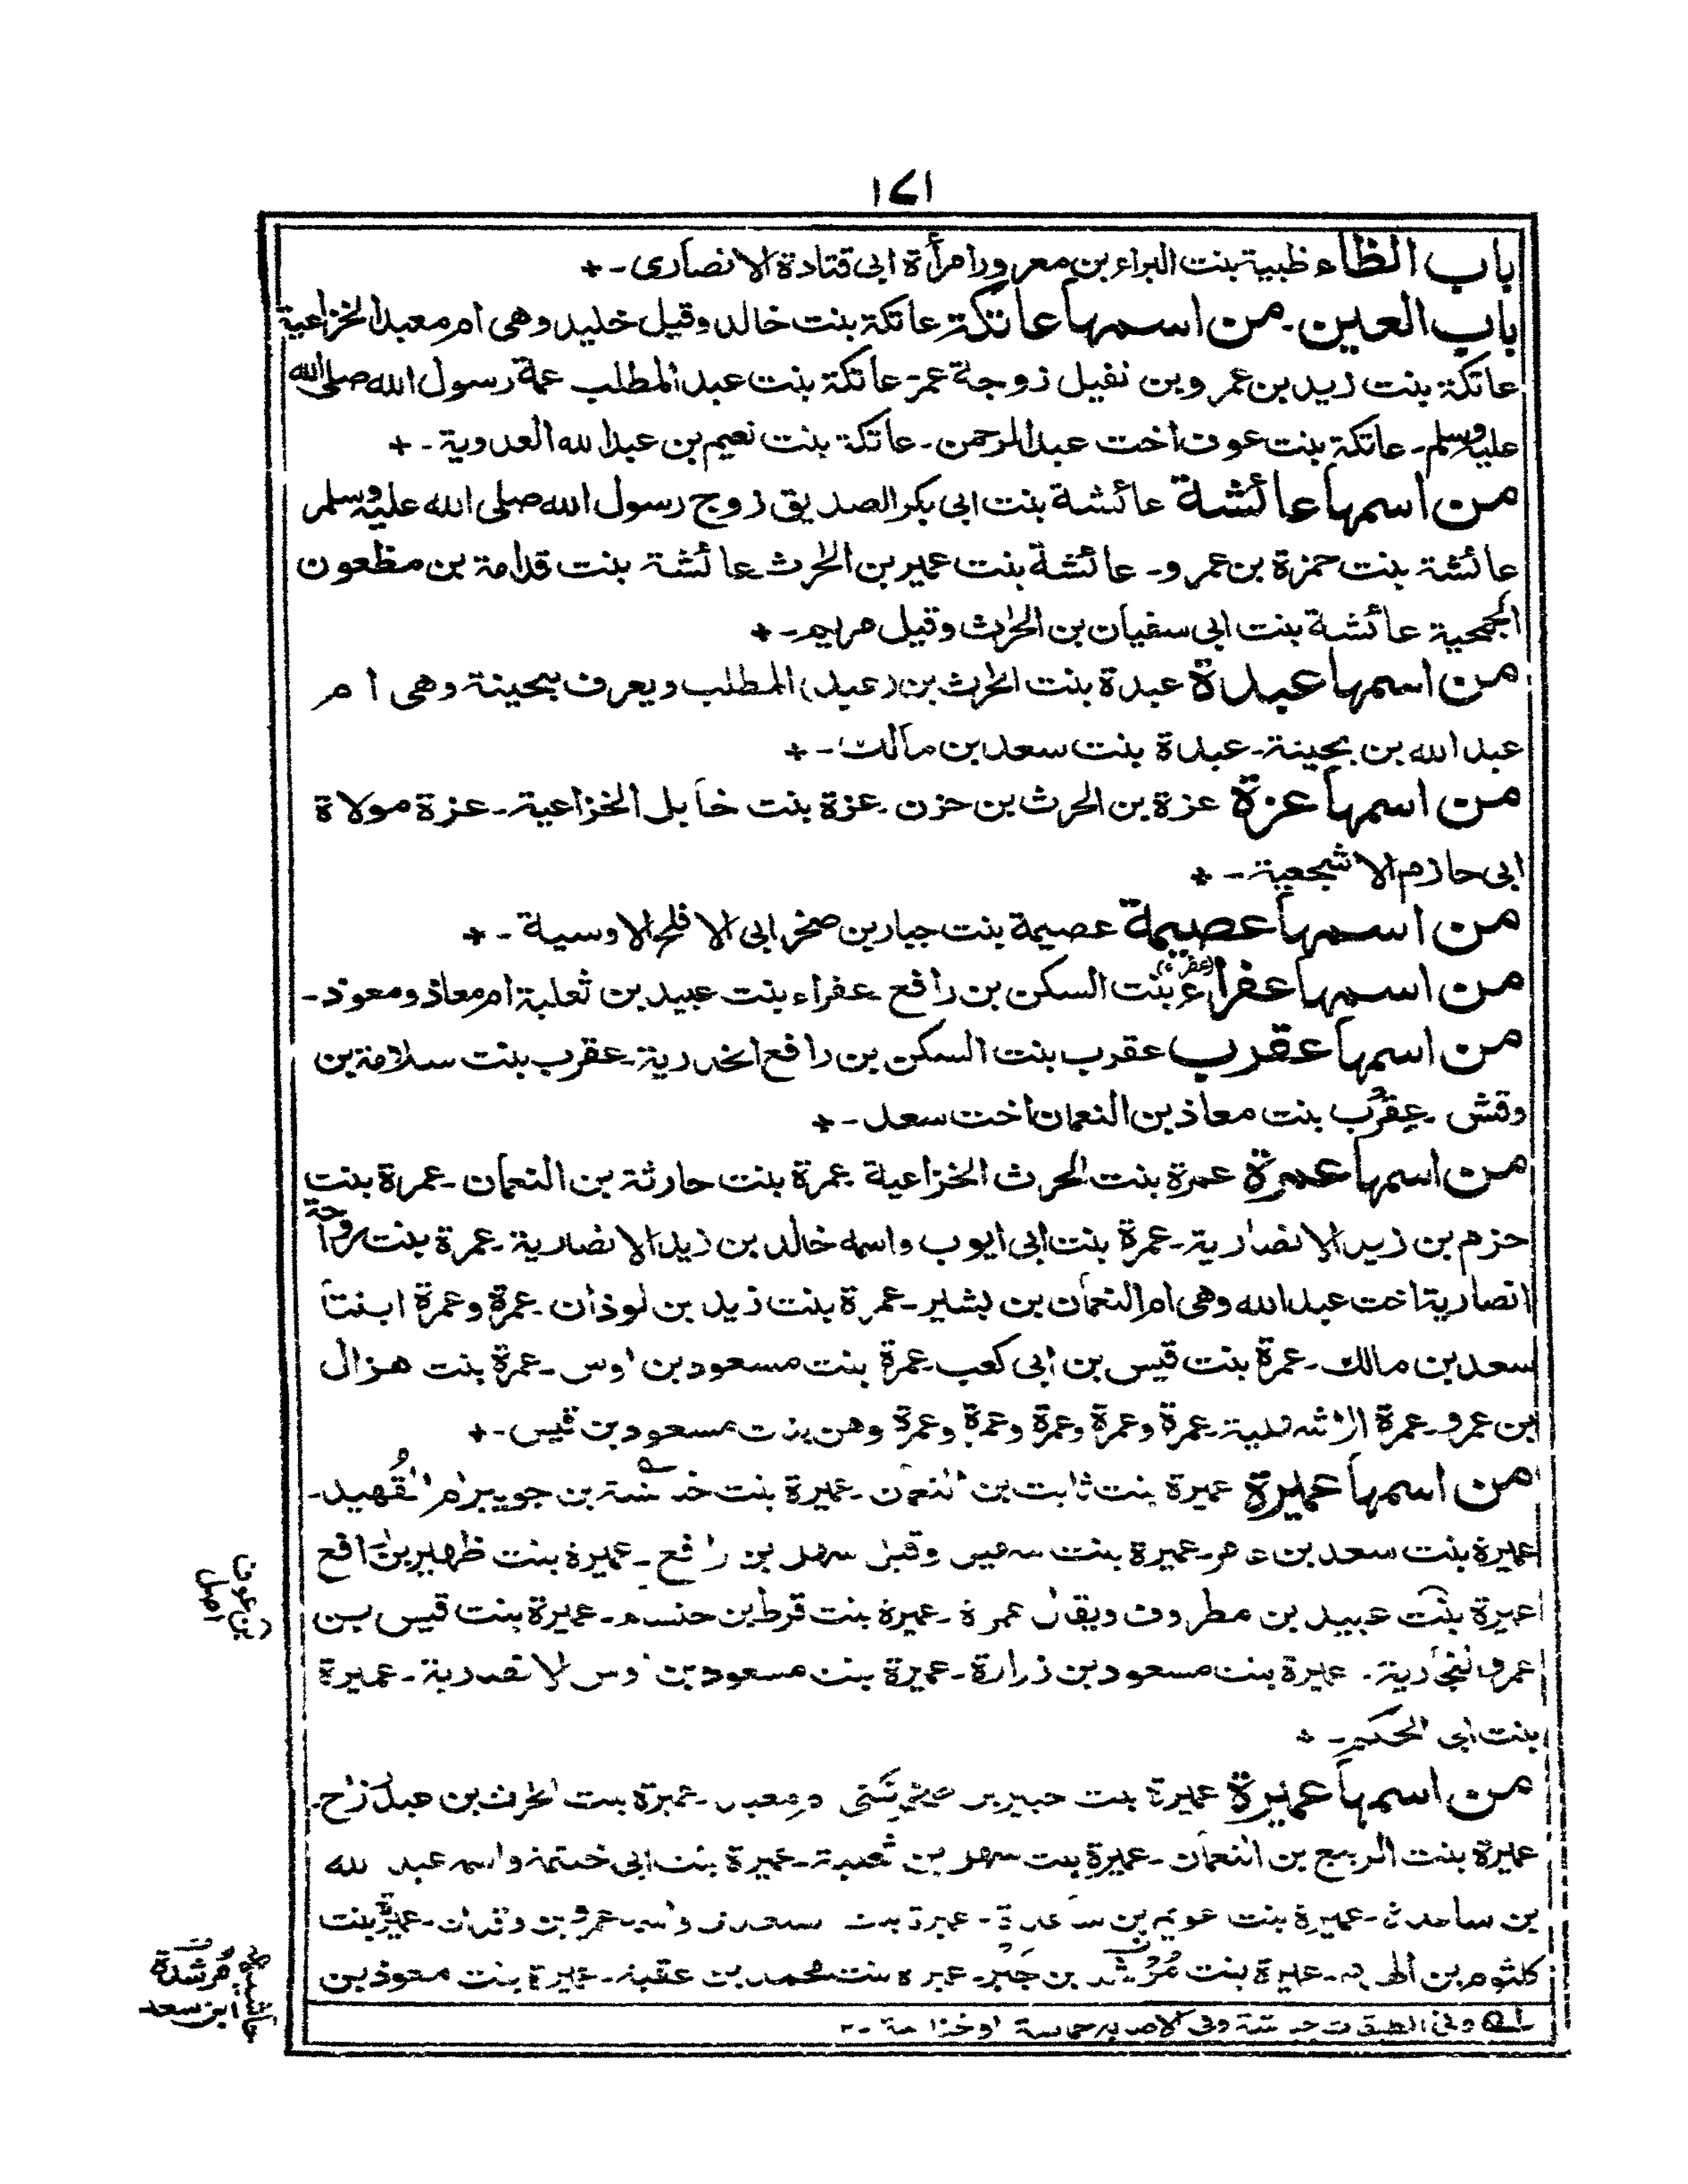 ١٧١
باب الظاء ظبية بنت البراء بن معرور امرأة ابى قتادة الانصارى-+
باب العين-من اسمها عاتكة عاتكة بنت خالد وقيل خليد وهى ام معبد الخزاعية
عاتكة بنت زيد بن عمرو بن نفيل زوجة عمر-عاتكة بنت عبد المطلب عمة رسول الله صلى الله
عليه وسلم-عاتكة بنت عوف اخت عبد الرحمن-عاتكة بنت نعيم بن عبد الله العدوية-+
من اسمها عائشة عائشة بنت ابى بكر الصديق زوج رسول الله صلى الله عليه وسلم
عائشة بنت حمزة بن عمرو-عائشة بنت عمير بن الحرث عائشة بنت قدامة بن مظعون
الجمحية عائشة بنت ابى سفيان بن الحرث وقيل مريم-+
من اسمها عبدة عبدة بنت الحرث بن (عبد) المطلب ويعرف ببحينة وهى ام
عبد الله بن بحينة-عبدة بنت سعد بن مالك-+
من اسمها عزة عزة بن الحرث بن حزن-عزة بنت خابل الخزاعية-عزة مولاة
ابى حازم الاشجعية-+
من اسمها عصيمة عصيمة بنت جبار بن صخر ابى الافلح الاوسية-+
من اسمها عفراء (عفراء) بنت السكن بن رافع عفراء بنت عبيد بن ثعلبة ام معاذ ومعوذ-
من اسمها عقرب عقرب بنت السكن بن رافع الخدرية-عقرب بنت سلامة بن
وقش-عقرب بنت معاذ بن النعمان اخت سعد-+
من اسمها عمرة عمرة بنت الحرث الخزاعية عمرة بنت حارثة بن النعمان-عمرة بنت
حزم بن زيد الانصارية-عمرة بنت ابى ايوب واسمه خالد بن زيد الانصارية-عمرة بنت رواحة
انصارية اخت عبد الله وهى ام النعمان بن بشير-عمرة بنت زيد بن لوذان-عمرة وعمرة ابنتا
سعد بن مالك-عمرة بنت قيس بن ابى كعب-عمرة بنت مسعود بن اوس-عمرة بنت هزال
بن عمرو-عمرة عمرة وعمرة وعمرة وعمرة وعمرة وهن بنات مسعود بن قيس-+
من اسمها عميرة عميرة بنت ثابت بن النعمان-عميرة بنت بن جويبر ام القهيد-
عميرة بنت سعد بن عامر-عميرة بنت وقيل سهل بن رافع-عميرة بنت ظهير بن رافع
عميرة بنت عبيد بن مطروف ويقال عمرة-عميرة بنت قرط بن خنساء-عميرة بنت قيس بن
(بن عوف اصل
عمرو النجارية-عميرة بنت مسعود بن زرارة-عميرة بنت مسعود بن اوس الانصارية-عميرة
بنت ابى الحكم-+
من اسمها عميرة عميرة بنت ومعبد-عميرة بنت الحرث بن عبد رزاح-
عميرة بنت الربيع بن النعمان-عميرة بنت سهل بن ثعلبة-عميرة بنت ابى خيثمة واسمه عبد الله
بن ساعدة-عميرة بنت عويم بن ساعدة-عميرة بنت عمرو بن وقدان-عميرة بنت
كلثوم بن الهدم-عميرة بنت مرشد بن جبر-عميرة بنت محمد بن عقبة-عميرة بنت معوذ بن
مرشدة ابن سعد
وفى الطبقات وفى الاصابة حماسة او خزامة-